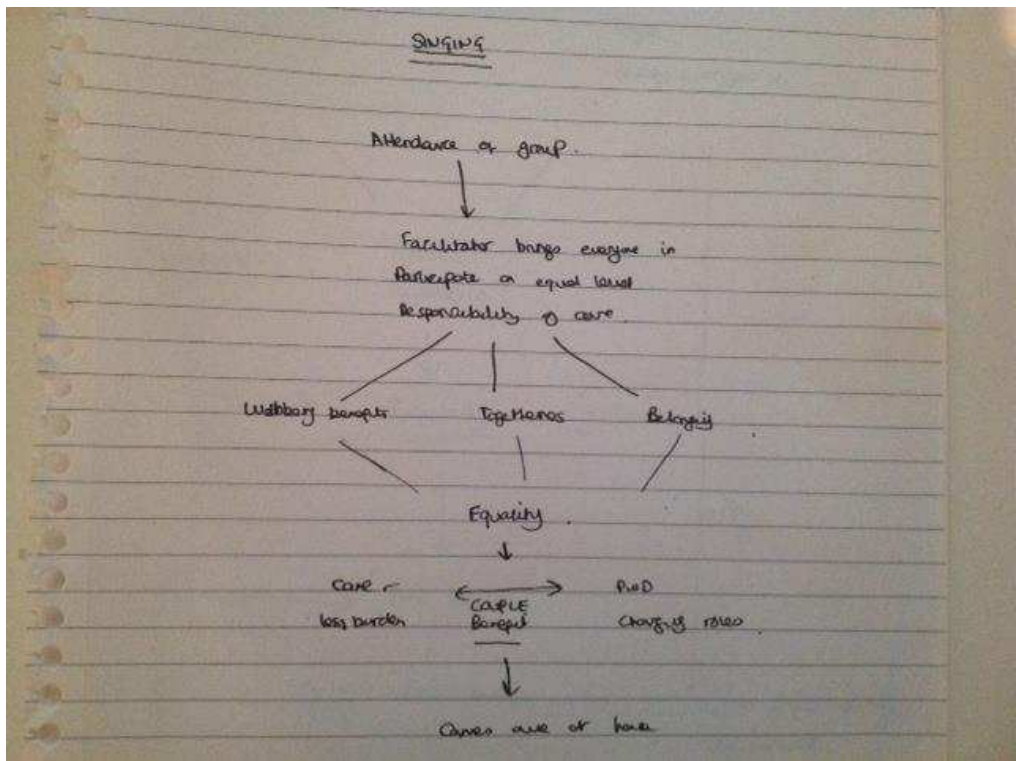 SINGING
Attendance of group.
Facilitator brings everyone in
Participate on equal level
Responsibility of care
Wellbeing benefits Togetherness Belonging
Equality.
Carer PwD
COUPLE
less burden Benefit Changing roles
at home